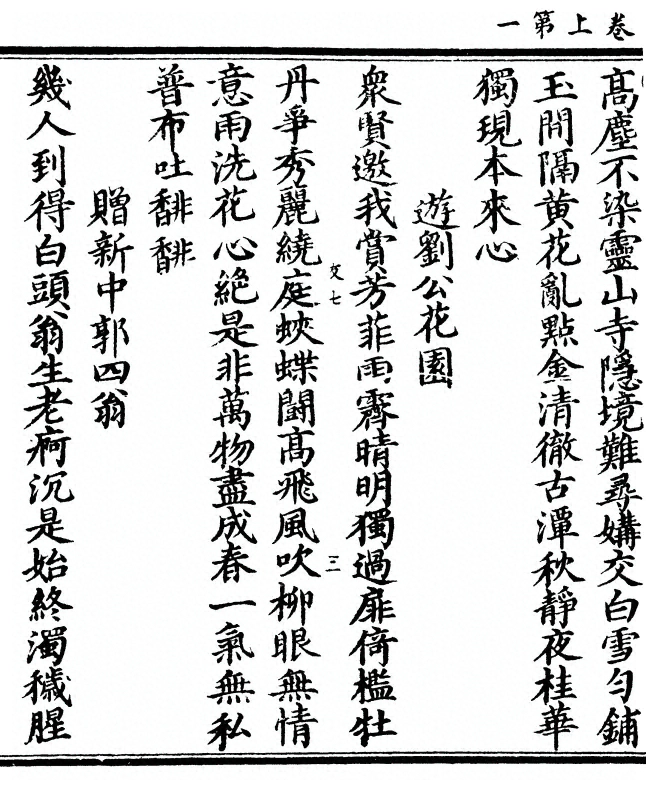 卷上第一
髙塵不染靈山寺隱境難尋媾交白雪勻鋪
玉間隔黄花亂點金清徹古潭秋靜夜桂華
獨現本來心
遊劉公花園
衆賢邀我賞芳菲雨霽晴明獨過扉倚檻牡
交七
三
丹爭秀麗繞庭蛺蝶鬪髙飛風吹柳眼無情
意雨洗花心絶是非萬物盡成春一氣無私
普布吐馡馡
贈新中郭四翁
幾人到得白頭翁生老痾沉是始終濁穢腥